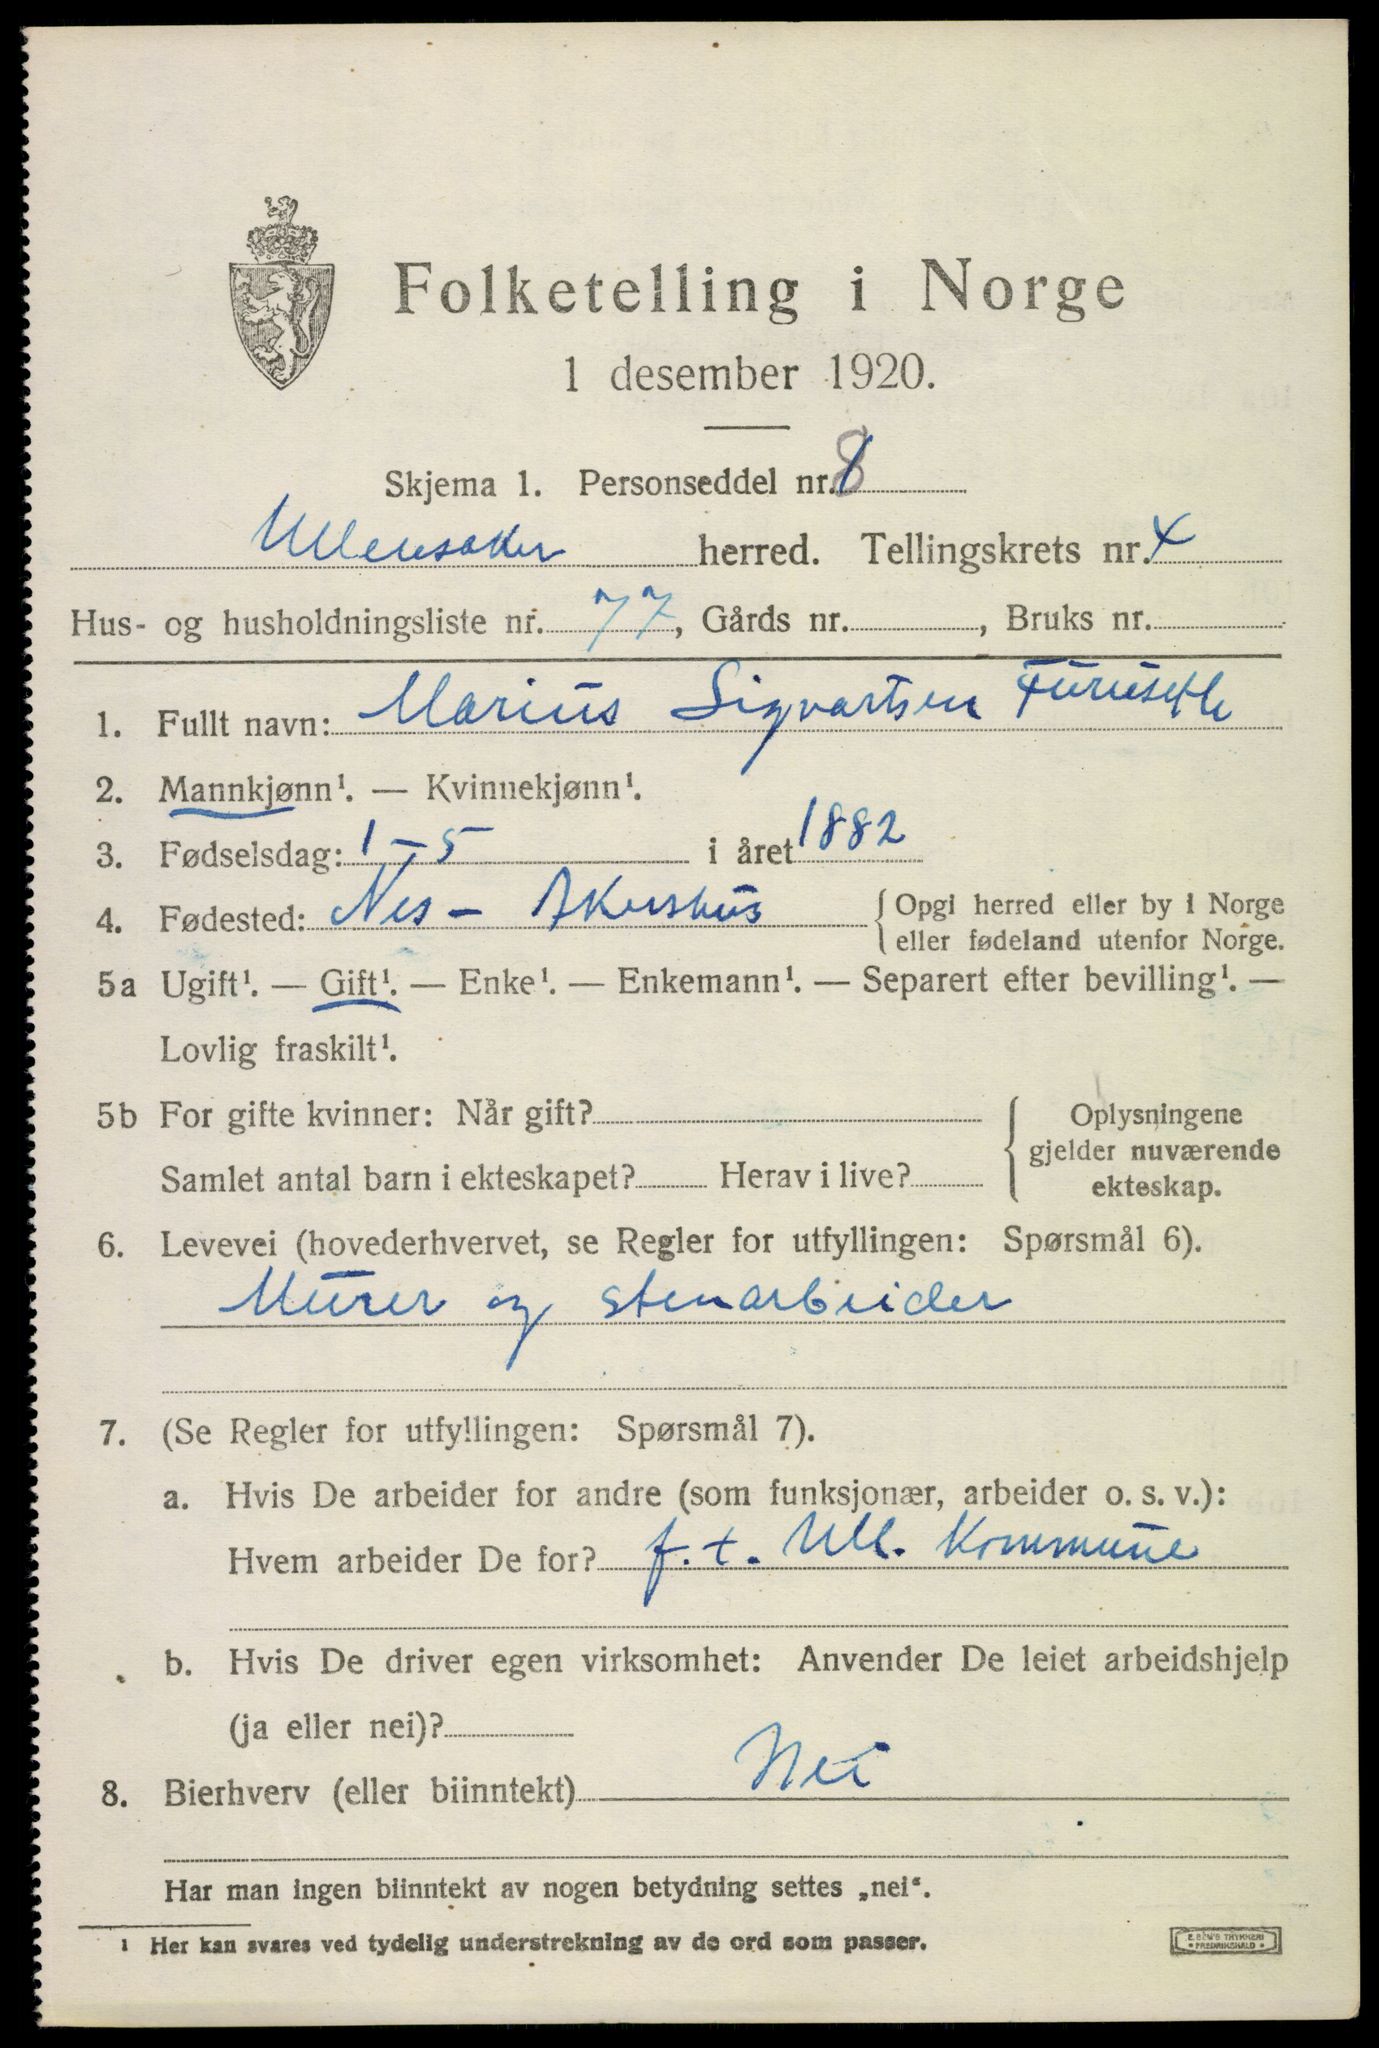 Folketelling i Norge
1 desember 1920.
Skjema 1. Personseddel nr. 8
Ullensaker herred. Tellingskrets nr. 4
Hus- og husholdningsliste nr. 77, Gårds nr. , Bruks nr.
1. Fullt navn: Marius Sigvartsen
2. Mannkjønn¹. — Kvinnekjønn¹.
3. Fødselsdag: 1-5 i året 1882
4. Fødested: Nes - Akershus { Opgi herred eller by i Norge
eller fødeland utenfor Norge.
5a Ugift¹. — Gift¹. — Enke¹. — Enkemann¹. — Separert efter bevilling¹. —
Lovlig fraskilt¹.
5b For gifte kvinner: Når gift? { Oplysningene
gjelder nuværende
Samlet antal barn i ekteskapet? Herav i live? ekteskap.
6. Levevei (hovederhvervet, se Regler for utfyllingen: Spørsmål 6).
Murer og stenarbeider
7. (Se Regler for utfyllingen: Spørsmål 7).
a. Hvis De arbeider for andre (som funksjonær, arbeider o. s. v.):
Hvem arbeider De for? f.t. Ull. Kommune
b. Hvis De driver egen virksomhet: Anvender De leiet arbeidshjelp
(ja eller nei)?
8. Bierhverv (eller biinntekt) Nei
Har man ingen biinntekt av nogen betydning settes „nei“.
¹ Her kan svares ved tydelig understrekning av de ord som passer.